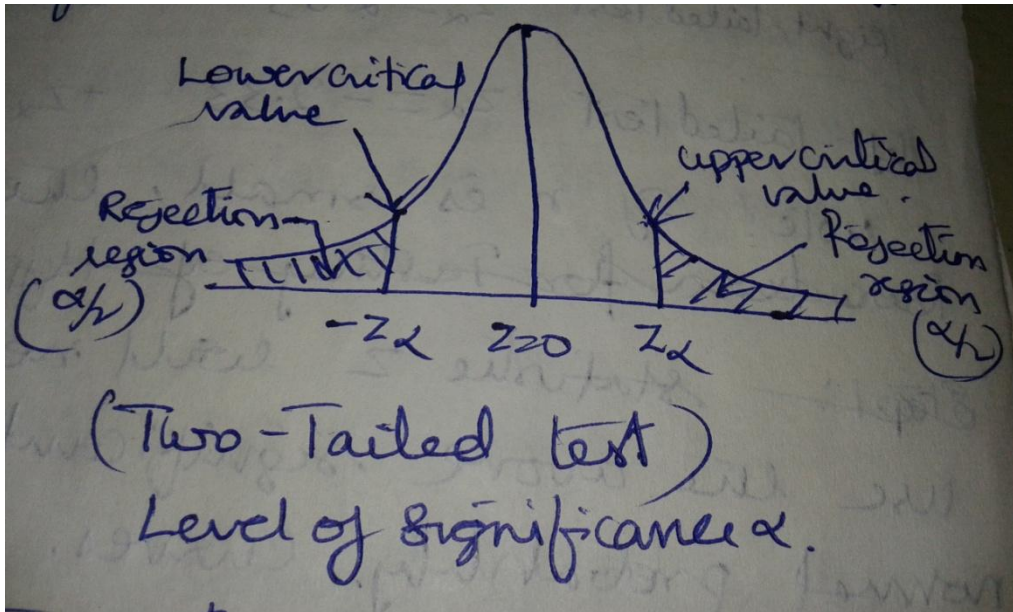 Lower critical
value
upper critical
value.
Rejection
region
(α/2)
Rejection
region
(α/2)
-Zα
Z=0
Zα
(Two-Tailed test)
Level of significance α.